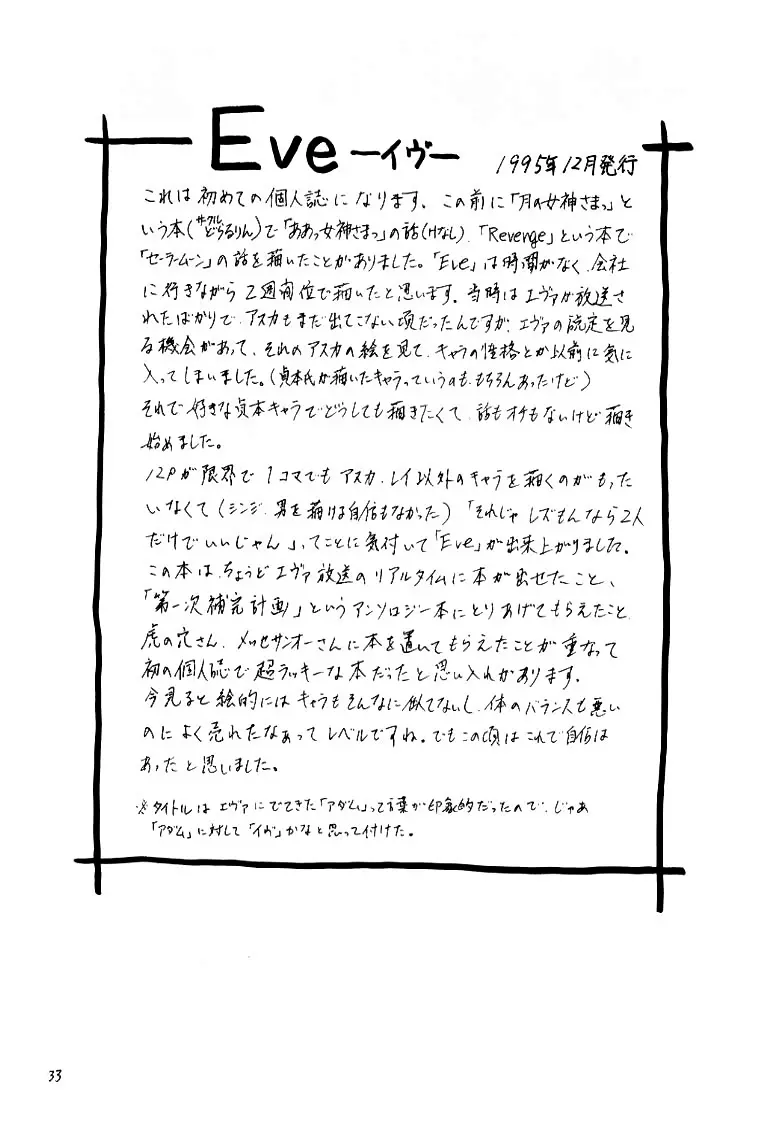 Eve ーイヴー 1995年12月発行
これは初めての個人誌になります、この前に「月の女神さまっ」と
いう本(サークルどらるりん)で「ああっ女神さまっ」の話(けなし)、「Revenge」という本で
「セーラームーン」の話を描いたことがありました。「Eve」は時間がなく、会社
に行きながら2週間位で描いたと思います。当時はエヴァが放送さ
れたばかりで、アスカもまだ出てこない頃だったんですが、エヴァの設定を見
る機会があって、それのアスカの絵を見て、キャラの性格とか以前に気に
入ってしまいました。(貞本氏が描いたキャラっていうのも、もちろんあったけど)
それで好きな貞本キャラでどうしても描きたくて、話もオチもないけど描き
始めました。
12Pが限界で1コマでもアスカ、レイ以外のキャラを描くのがもった
いなくて(シンジ、男を描ける自信もなかった)「それじゃレズもんなら2人
だけでいいじゃん」ってことに気付いて「Eve」が出来上がりました。
この本は、ちょうどエヴァ放送のリアルタイムに本が出せたこと、
「第一次補完計画」というアンソロジー本にとりあげてもらえたこと、
虎の穴さん、メッセサンオーさんに本を置いてもらえたことが重なって
初の個人誌で超ラッキーな本だったと思い入れがあります。
今見ると絵的にはキャラもそんなに似てないし、体のバランスも悪い
のによく売れたなあってレベルですね。でもこの頃はこれで自信は
あったと思いました。
※タイトルはエヴァにでてきた「アダム」って言葉が印象的だったので、じゃあ
「アダム」に対して「イヴ」かなと思って付けた。
33